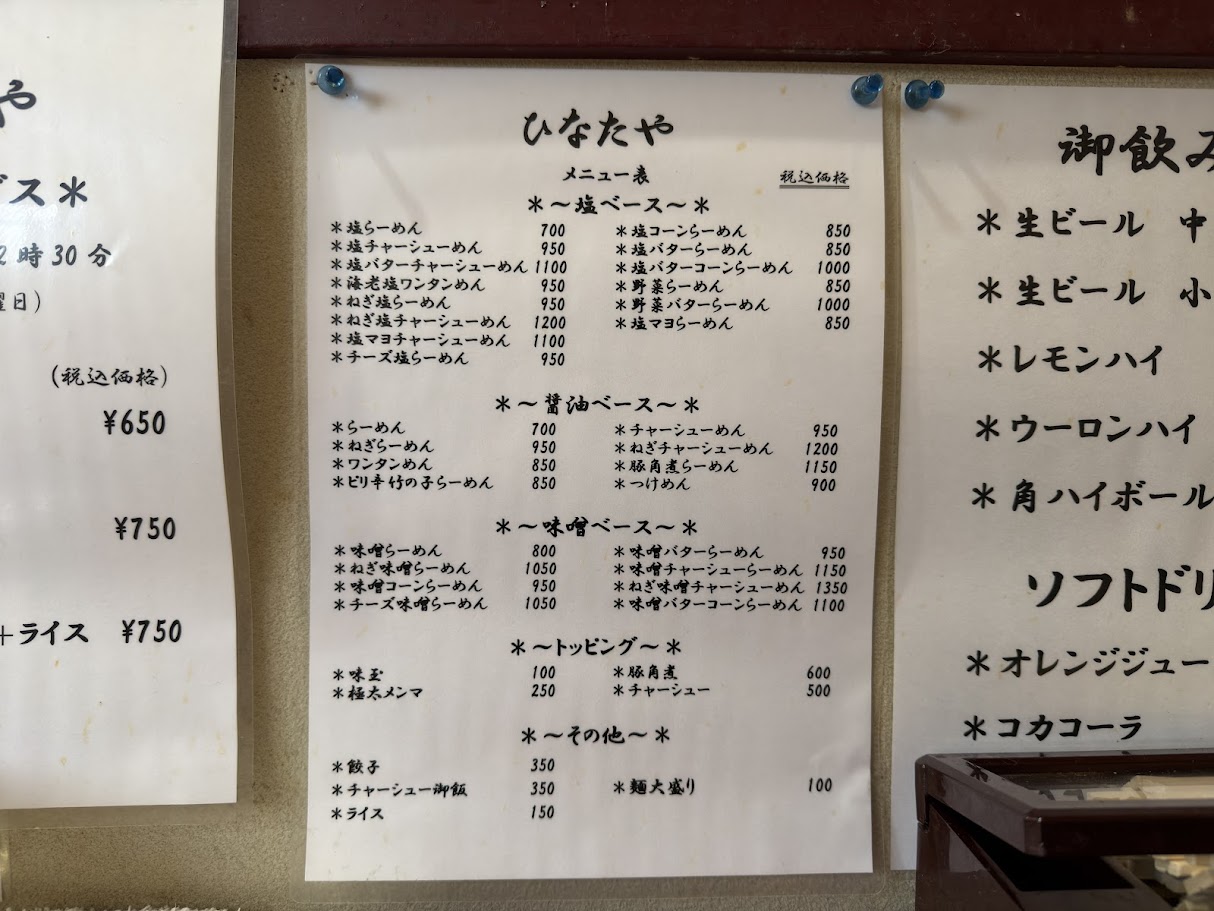 や
ス＊
2時30分
曜日）
(税込価格)
¥650
¥750
＋ライス ¥750
ひなたや
メニュー表 税込価格
＊～塩ベース～＊
＊塩らーめん 700 ＊塩コーンらーめん 850
＊塩チャーシューめん 950 ＊塩バターらーめん 850
＊塩バターチャーシューめん 1100 ＊塩バターコーンらーめん 1000
＊海老塩ワンタンめん 950 ＊野菜らーめん 850
＊ねぎ塩らーめん 950 ＊野菜バターらーめん 1000
＊ねぎ塩チャーシューめん 1200 ＊塩マヨらーめん 850
＊塩マヨチャーシューめん 1100
＊チーズ塩らーめん 950
＊～醤油ベース～＊
＊らーめん 700 ＊チャーシューめん 950
＊ねぎらーめん 950 ＊ねぎチャーシューめん 1200
＊ワンタンめん 850 ＊豚角煮らーめん 1150
＊ピリ辛竹の子らーめん 850 ＊つけめん 900
＊～味噌ベース～＊
＊味噌らーめん 800 ＊味噌バターらーめん 950
＊ねぎ味噌らーめん 1050 ＊味噌チャーシューらーめん 1150
＊味噌コーンらーめん 950 ＊ねぎ味噌チャーシューめん 1350
＊チーズ味噌らーめん 1050 ＊味噌バターコーンらーめん 1100
＊～トッピング～＊
＊味玉 100 ＊豚角煮 600
＊極太メンマ 250 ＊チャーシュー 500
＊～その他～＊
＊餃子 350
＊チャーシュー御飯 350 ＊麺大盛り 100
＊ライス 150
御飲み
＊生ビール 中
＊生ビール 小
＊レモンハイ
＊ウーロンハイ
＊角ハイボール
ソフトドリ
＊オレンジジュー
＊コカコーラ